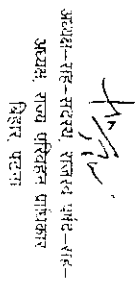 अध्यक्ष-सह-सदस्य, राज्य पर्षद-सह-
अध्यक्ष, राज्य परिवहन प्राधिकार
बिहार, पटना